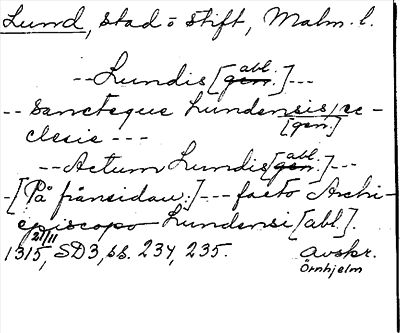 Lund, stad o stift, Malm. l.
--Lundis [gen. abl.]---
-- Sancteque Lundensis ec-
[gen.]
clesie ---
--Actum Lundis [gen. abl.]---
-[På frånsidan:]--- facto Archi-
episcopo Lundensi [abl.].
1315 21/11, SD3, ss. 234, 235. avskr.
Örnhjelm